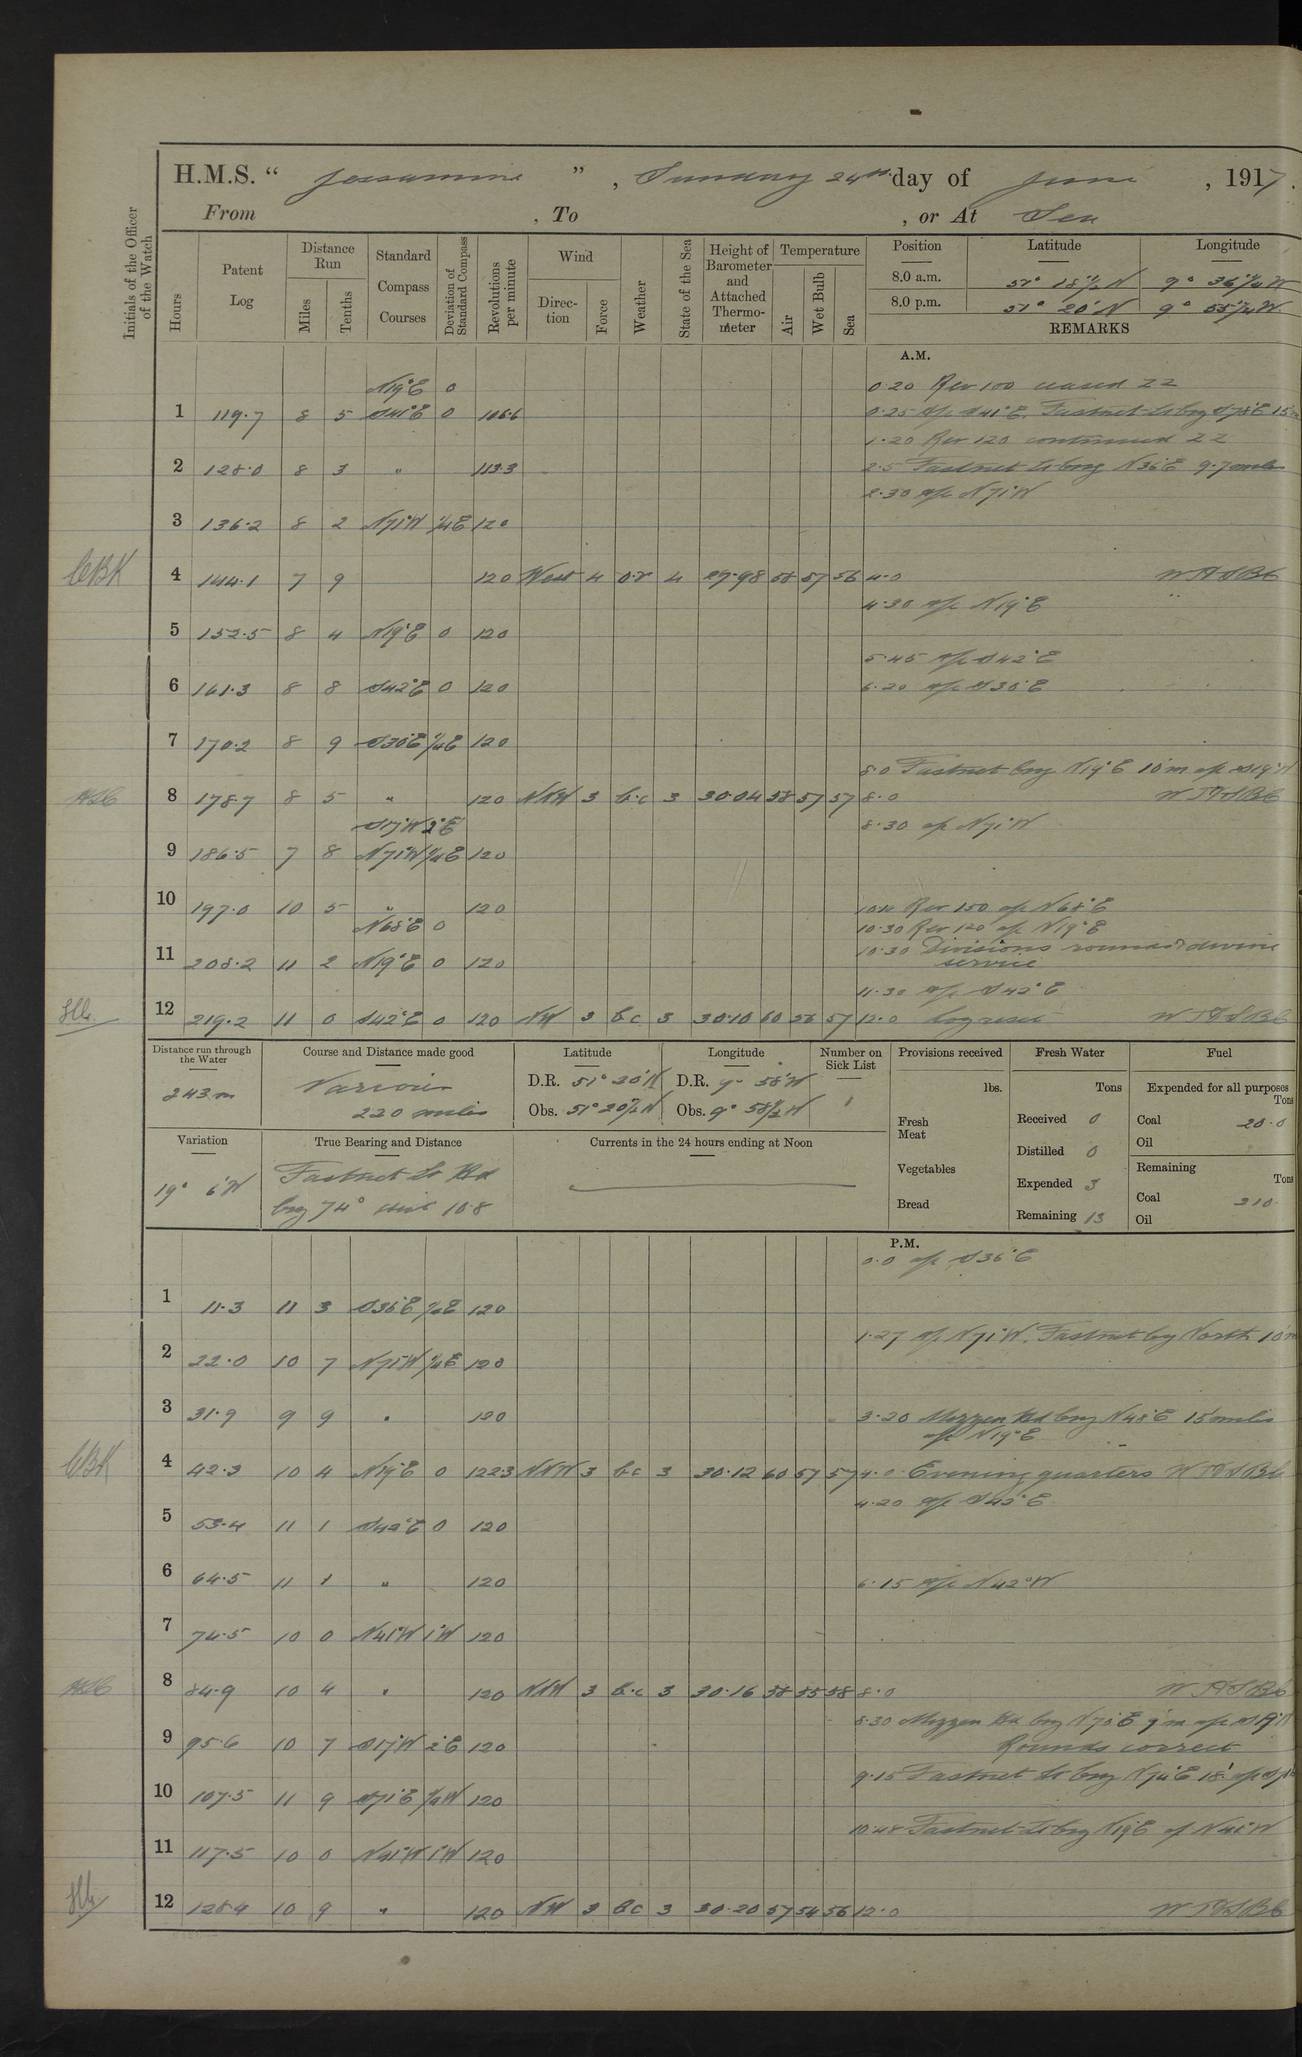 H.M.S. " Jessamine ", Sunday 24th day of June, 1917.
From , To , or At Sea
Initials of the Officer of the Watch
Hours
Patent Log
Distance Run
Miles
Tenths
Standard Compass Courses
Deviation of Standard Compass
Revolutions per minute
Wind
Direction
Force
Weather
State of the Sea
Height of Barometer and Attached Thermometer
Temperature
Air
Wet Bulb
Sea
Position Latitude Longitude
8.0 a.m. 51° N 9° W
8.0 p.m. 51° 20' N 9° W
REMARKS
A.M.
N19°E 0 0.20 Rev 100 ceased ZZ
1 119.7 8 5 S41°E 0 106.6 0.25 a/c S41°E. Fastnet Lt brg S78°E
1.20 Rev 120 continued ZZ
2 128.0 8 3 " 113.3 2.5 Fastnet Lt brg N36°E 9.7 miles
2.30 a/c N71°W
3 136.2 8 2 N71°W 1/4E 120
CBK 4 144.1 7 9 120 West 4 o.r 4 29.98 58 57 56 4.0
4.30 a/c N19°E
5 152.5 8 4 N19°E 0 120
5.45 a/c S42°E
6 161.3 8 8 S42°E 0 120 6.20 a/c
7 170.2 8 9 120
8.0 Fastnet brg N19°E 10'm a/c
8 178.7 8 5 " 120 NNW 3 b.c 3 30.04 58 57 57 8.0
S17°W 2°E 8.30 a/c N71°W
9 186.5 7 8 N71°W 1/4E 120
10 197.0 10 5 " 120 Rev 150 a/c N68°E
N68°E 0 10.30 Rev 120 a/c N19°E
11 208.2 11 2 N19°E 0 120 10.30 Divisions rounds & divine service
11.30 a/c S42°E
12 219.2 11 0 S42°E 0 120 NW 3 b.c 3 30.10 60 56 57 12.0 log reset
Distance run through the Water 243 m
Course and Distance made good Various 220 miles
Latitude D.R. 51° 20' N Obs. 51° N
Longitude D.R. 9° 58' W Obs. 9° 58 1/2 W
Number on Sick List
Provisions received lbs.
Fresh Meat
Vegetables
Bread
Fresh Water Tons
Received 0
Distilled 0
Expended 3
Remaining 13
Fuel
Expended for all purposes Tons
Coal 20.0
Oil
Remaining Tons
Coal 210.
Oil
Variation 19° 6'W
True Bearing and Distance Fastnet Lt brg 74° dist 10.8
Currents in the 24 hours ending at Noon
P.M.
0.0 a/c S36°E
1 11.3 11 3 S36°E 120
1.27 a/c N71°W. Fastnet brg North
2 22.0 10 7 N71°W 1/4E 120
3 31.9 9 9 " 120 3.20 Mizzen Hd brg N48°E 15 miles
a/c N19°E
CBK 4 42.3 10 4 N19°E 0 122.3 NNW 3 b.c 3 30.12 60 57 57 4.0 Evening quarters
4.20 a/c S42°E
5 53.4 11 1 S42°E 0 120
6 64.5 11 1 " 120 6.15 a/c N42°W
7 74.5 10 0 N41°W 1°W 120
8 84.9 10 4 " 120 NNW 3 b.c 3 30.16 58 55 58 8.0
8.30 Mizzen Hd brg N70°E 9'm a/c
9 95.6 10 7 S17°W 2°E 120 Rounds correct
9.15 Fastnet Lt brg N74°E 18' a/c
10 107.5 11 9 S71°E 120
10.48 Fastnet Lt brg N19°E a/c N41°W
11 117.5 10 0 N41°W 1°W 120
12 128.4 10 9 " 120 NW 3 b.c 3 30.20 57 54 56 12.0